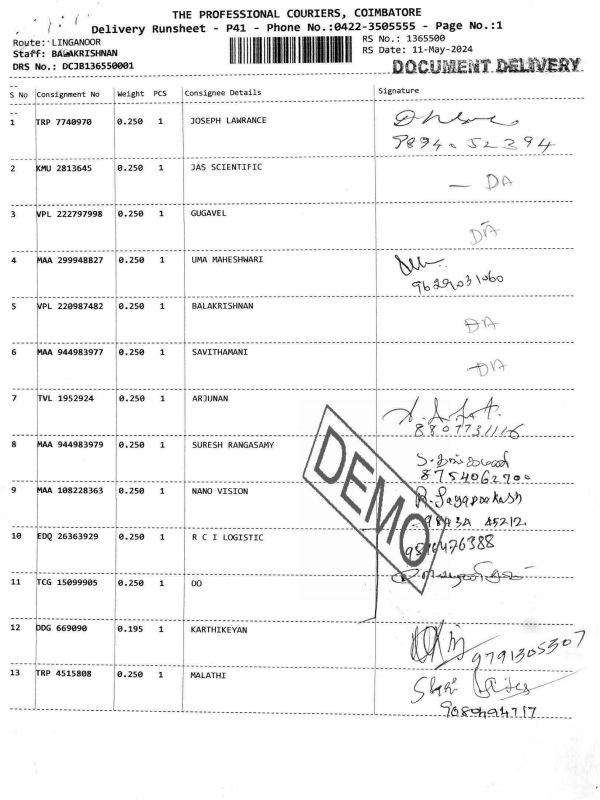 THE PROFESSIONAL COURIERS, COIMBATORE
Delivery Runsheet - P41 - Phone No.:0422-3505555 - Page No.:1
Route: LINGANOOR
RS No.: 1365500
Staff: BALAKRISHNAN
RS Date: 11-May-2024
DRS No.: DCJB136550001
DOCUMENT DELIVERY
S No Consignment No Weight PCS Consignee Details Signature
1 TRP 7740970 0.250 1 JOSEPH LAWRANCE
2 KMU 2813645 0.250 1 JAS SCIENTIFIC - DA
3 VPL 222797998 0.250 1 GUGAVEL DA
4 MAA 299948827 0.250 1 UMA MAHESHWARI
9629031060
5 VPL 220987482 0.250 1 BALAKRISHNAN DA
6 MAA 944983977 0.250 1 SAVITHAMANI DA
7 TVL 1952924 0.250 1 ARJUNAN
8807731116
8 MAA 944983979 0.250 1 SURESH RANGASAMY
8754062700
9 MAA 108228363 0.250 1 NANO VISION
10 EDQ 26363929 0.250 1 R C I LOGISTIC
11 TCG 15099905 0.250 1 DO
12 DDG 669090 0.195 1 KARTHIKEYAN
9791305307
13 TRP 4515808 0.250 1 MALATHI
DEMO